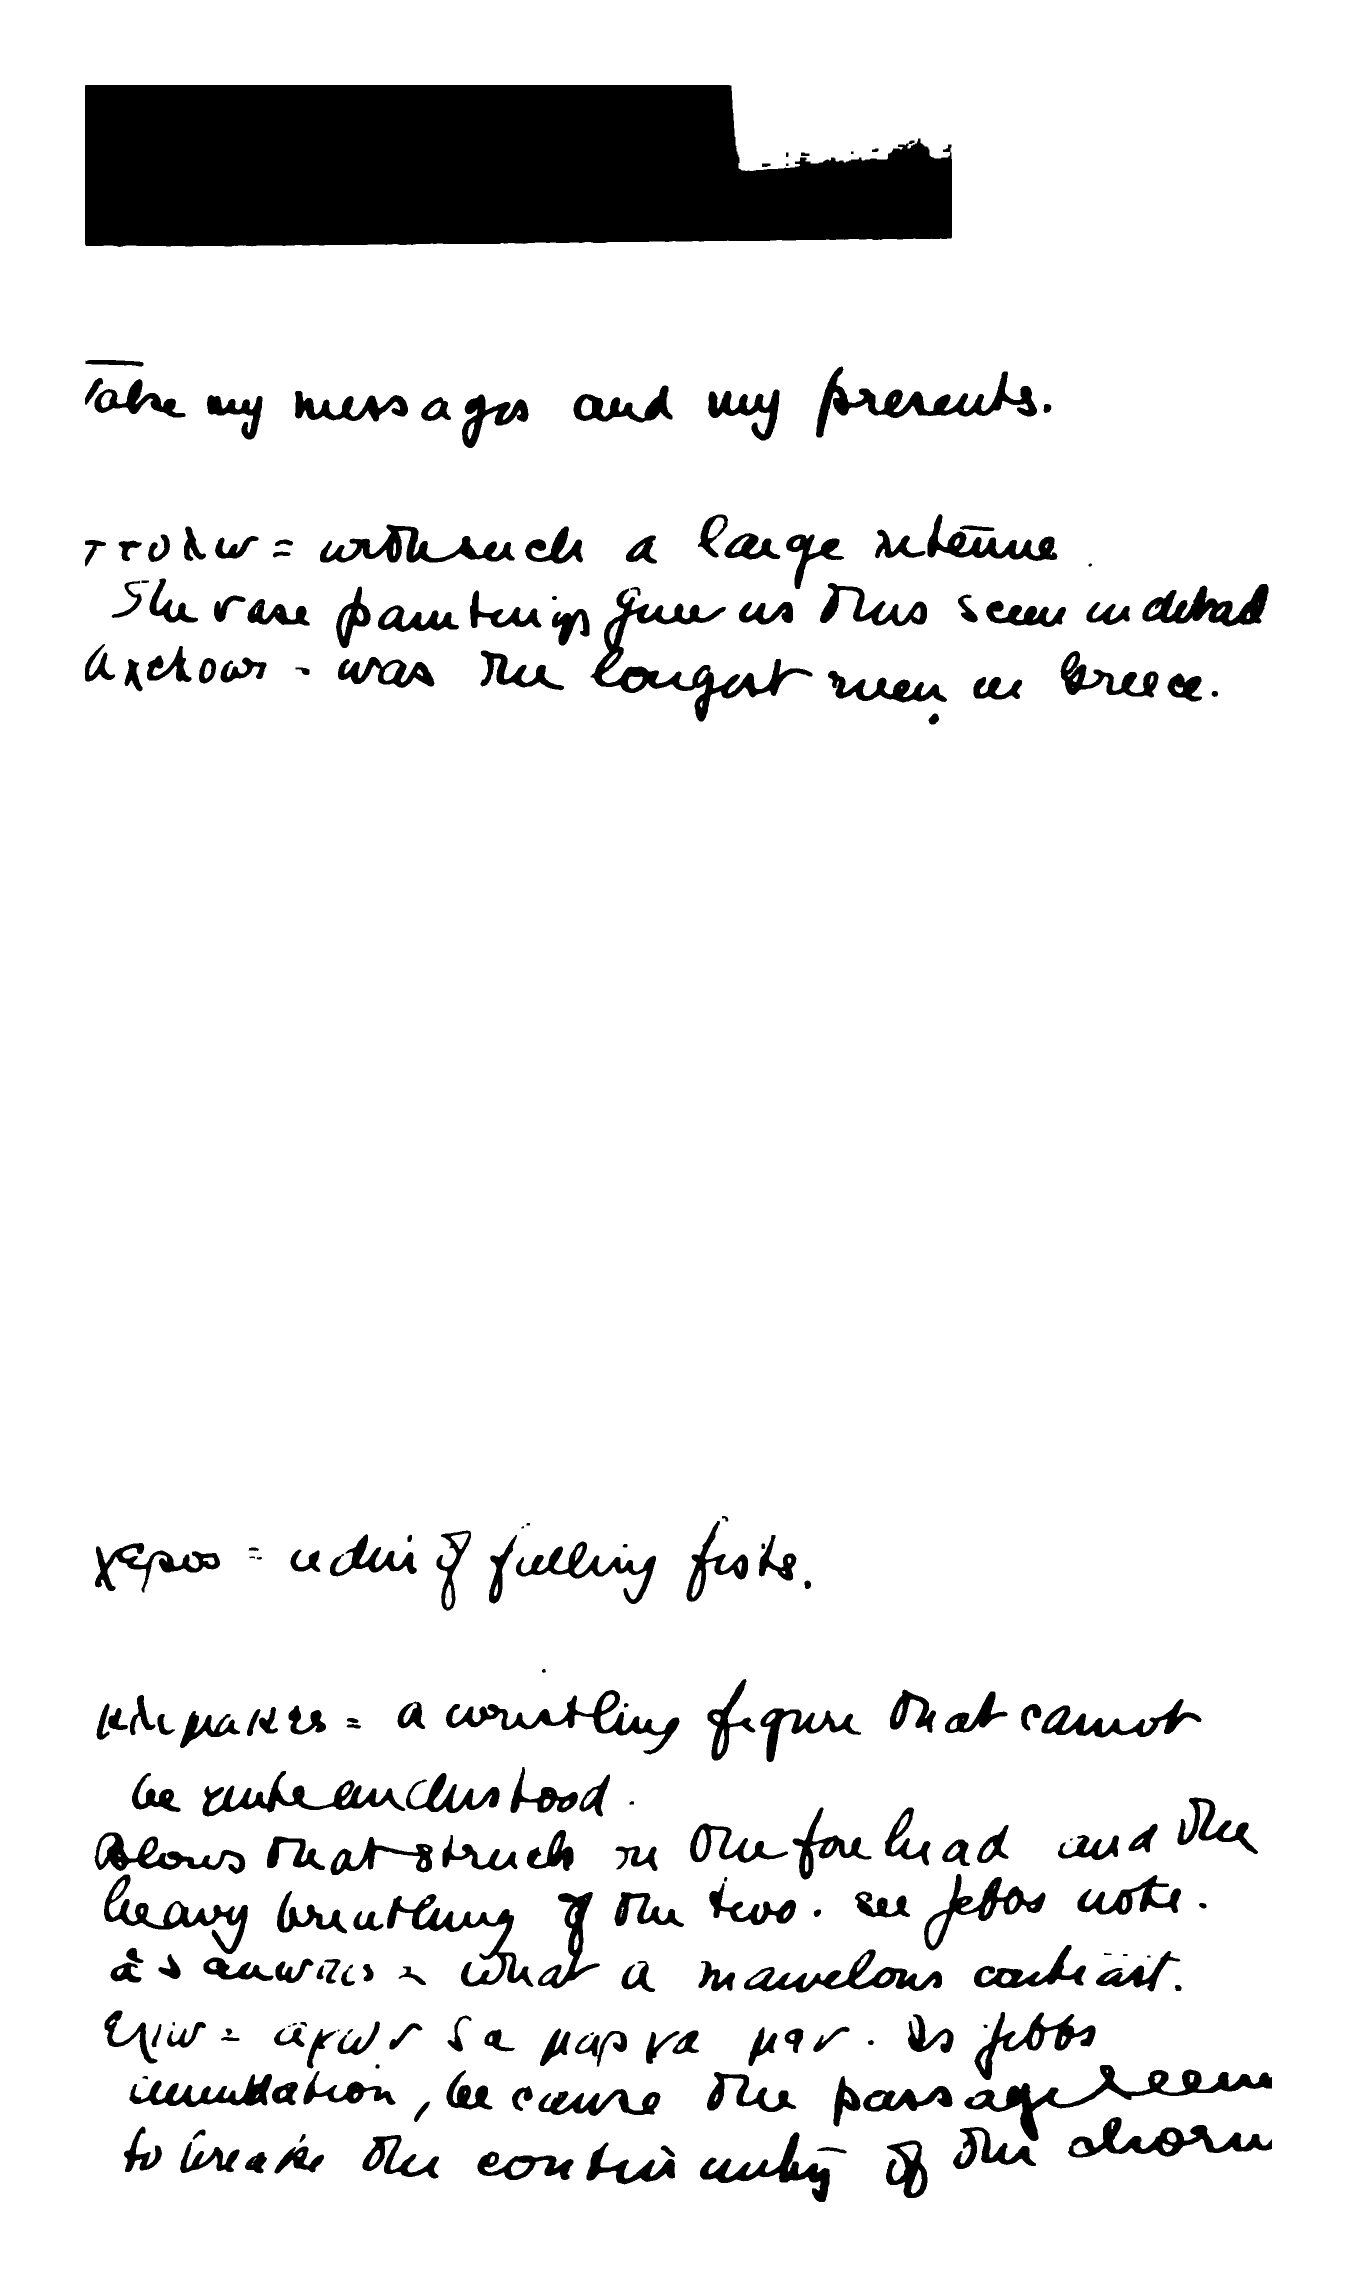 Take my messages and my presents.
στολω = with such a large retinue
The vase paintings give us this scene in detail
Αχελωον - was the longest river in Greece.
χερος = a din of falling fists.
κλιμακες = a wrestling figure that cannot
be quite understood.
Blows that struck in the forehead and the
heavy breathing of the two. see Jebbs note.
α δ ευωπις = what a marvelous contrast.
εγω = μαρ μεν. Is Jebbs
emendation, because the passage seem
to break the continuity of the chorus